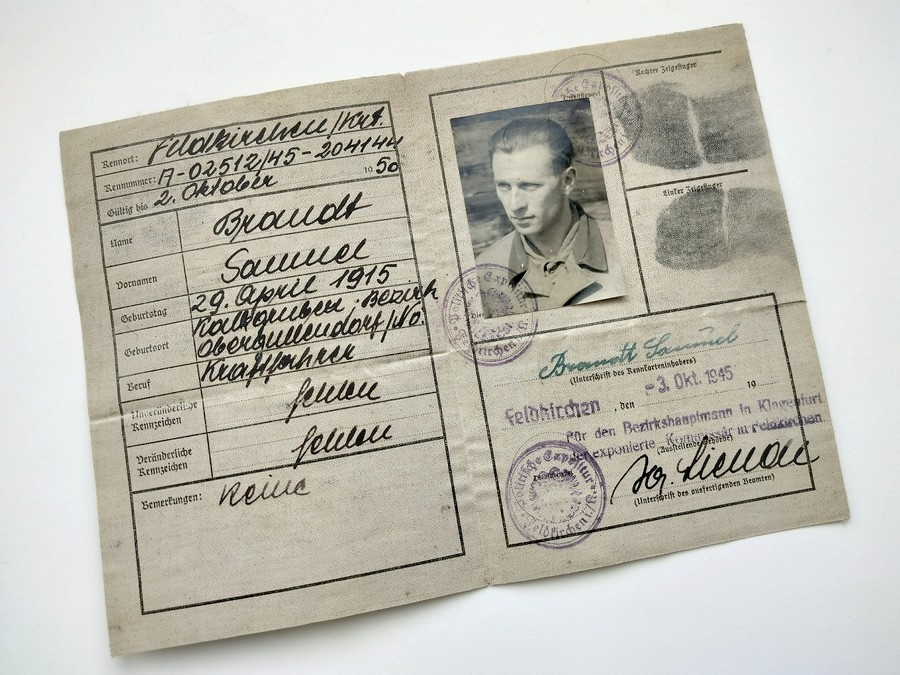 Kennort: Feldkirchen/Krt.
Kennummer: A-02512/45-204144
Gültig bis 2. Oktober 1950
Name Brandt
Vornamen Samuel
Geburtstag 29. April 1915
Geburtsort Bezirk
Beruf Kraftfahrer
Unveränderliche
Kennzeichen fehlen
Veränderliche
Kennzeichen fehlen
Bemerkungen: Keine
Rechter Zeigefinger
Linker Zeigefinger
Brandt Samuel
(Unterschrift des Kennkarteninhabers)
Feldkirchen, den -3. Okt. 1945 19
Für den Bezirkshauptmann in Klagenfurt
der exponierte Kommissär in Feldkirchen
(Ausstellende Behörde)
(Unterschrift des ausfertigenden Beamten)
Politische Expositur
Feldkirchen i. K.